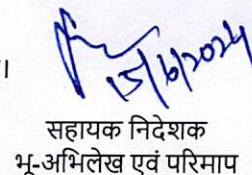 ।
15/10/2024
सहायक निदेशक
भू-अभिलेख एवं परिमाप